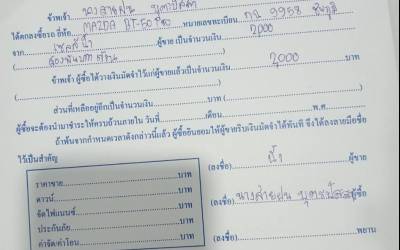 ข้าพเจ้า นางสายฝน
ได้ตกลงซื้อรถ ยี่ห้อ MAZDA BT-50 PRO หมายเลขทะเบียน 9958 ชัยภูมิ
จาก ผู้ขาย เป็นจำนวนเงิน 2,000
2,000
ข้าพเจ้า ผู้ซื้อ ได้วางเงินมัดจำไว้แก่ผู้ขายแล้วเป็นจำนวนเงิน
ส่วนที่เหลืออยู่อีกเป็นจำนวนเงิน บาท
ผู้ซื้อจะต้องนำมาชำระให้ครบถ้วนภายใน วันที่ เดือน พ.ศ.
ถ้าพ้นจากกำหนดเวลาดังกล่าวนี้แล้ว ผู้ซื้อยินยอมให้ผู้ขายริบเงินมัดจำได้ทันที จึงได้ลงลายมือชื่อ
ไว้เป็นสำคัญ
ราคาขาย บาท
ดาวน์ บาท
จัดไฟแนนซ์ บาท
ประกันภัย บาท
ค่าจัด/ค่าโอน บาท
(ลงชื่อ) น้ำ ผู้ขาย
(ลงชื่อ) นางสายฝน ผู้ซื้อ
(ลงชื่อ) พยาน